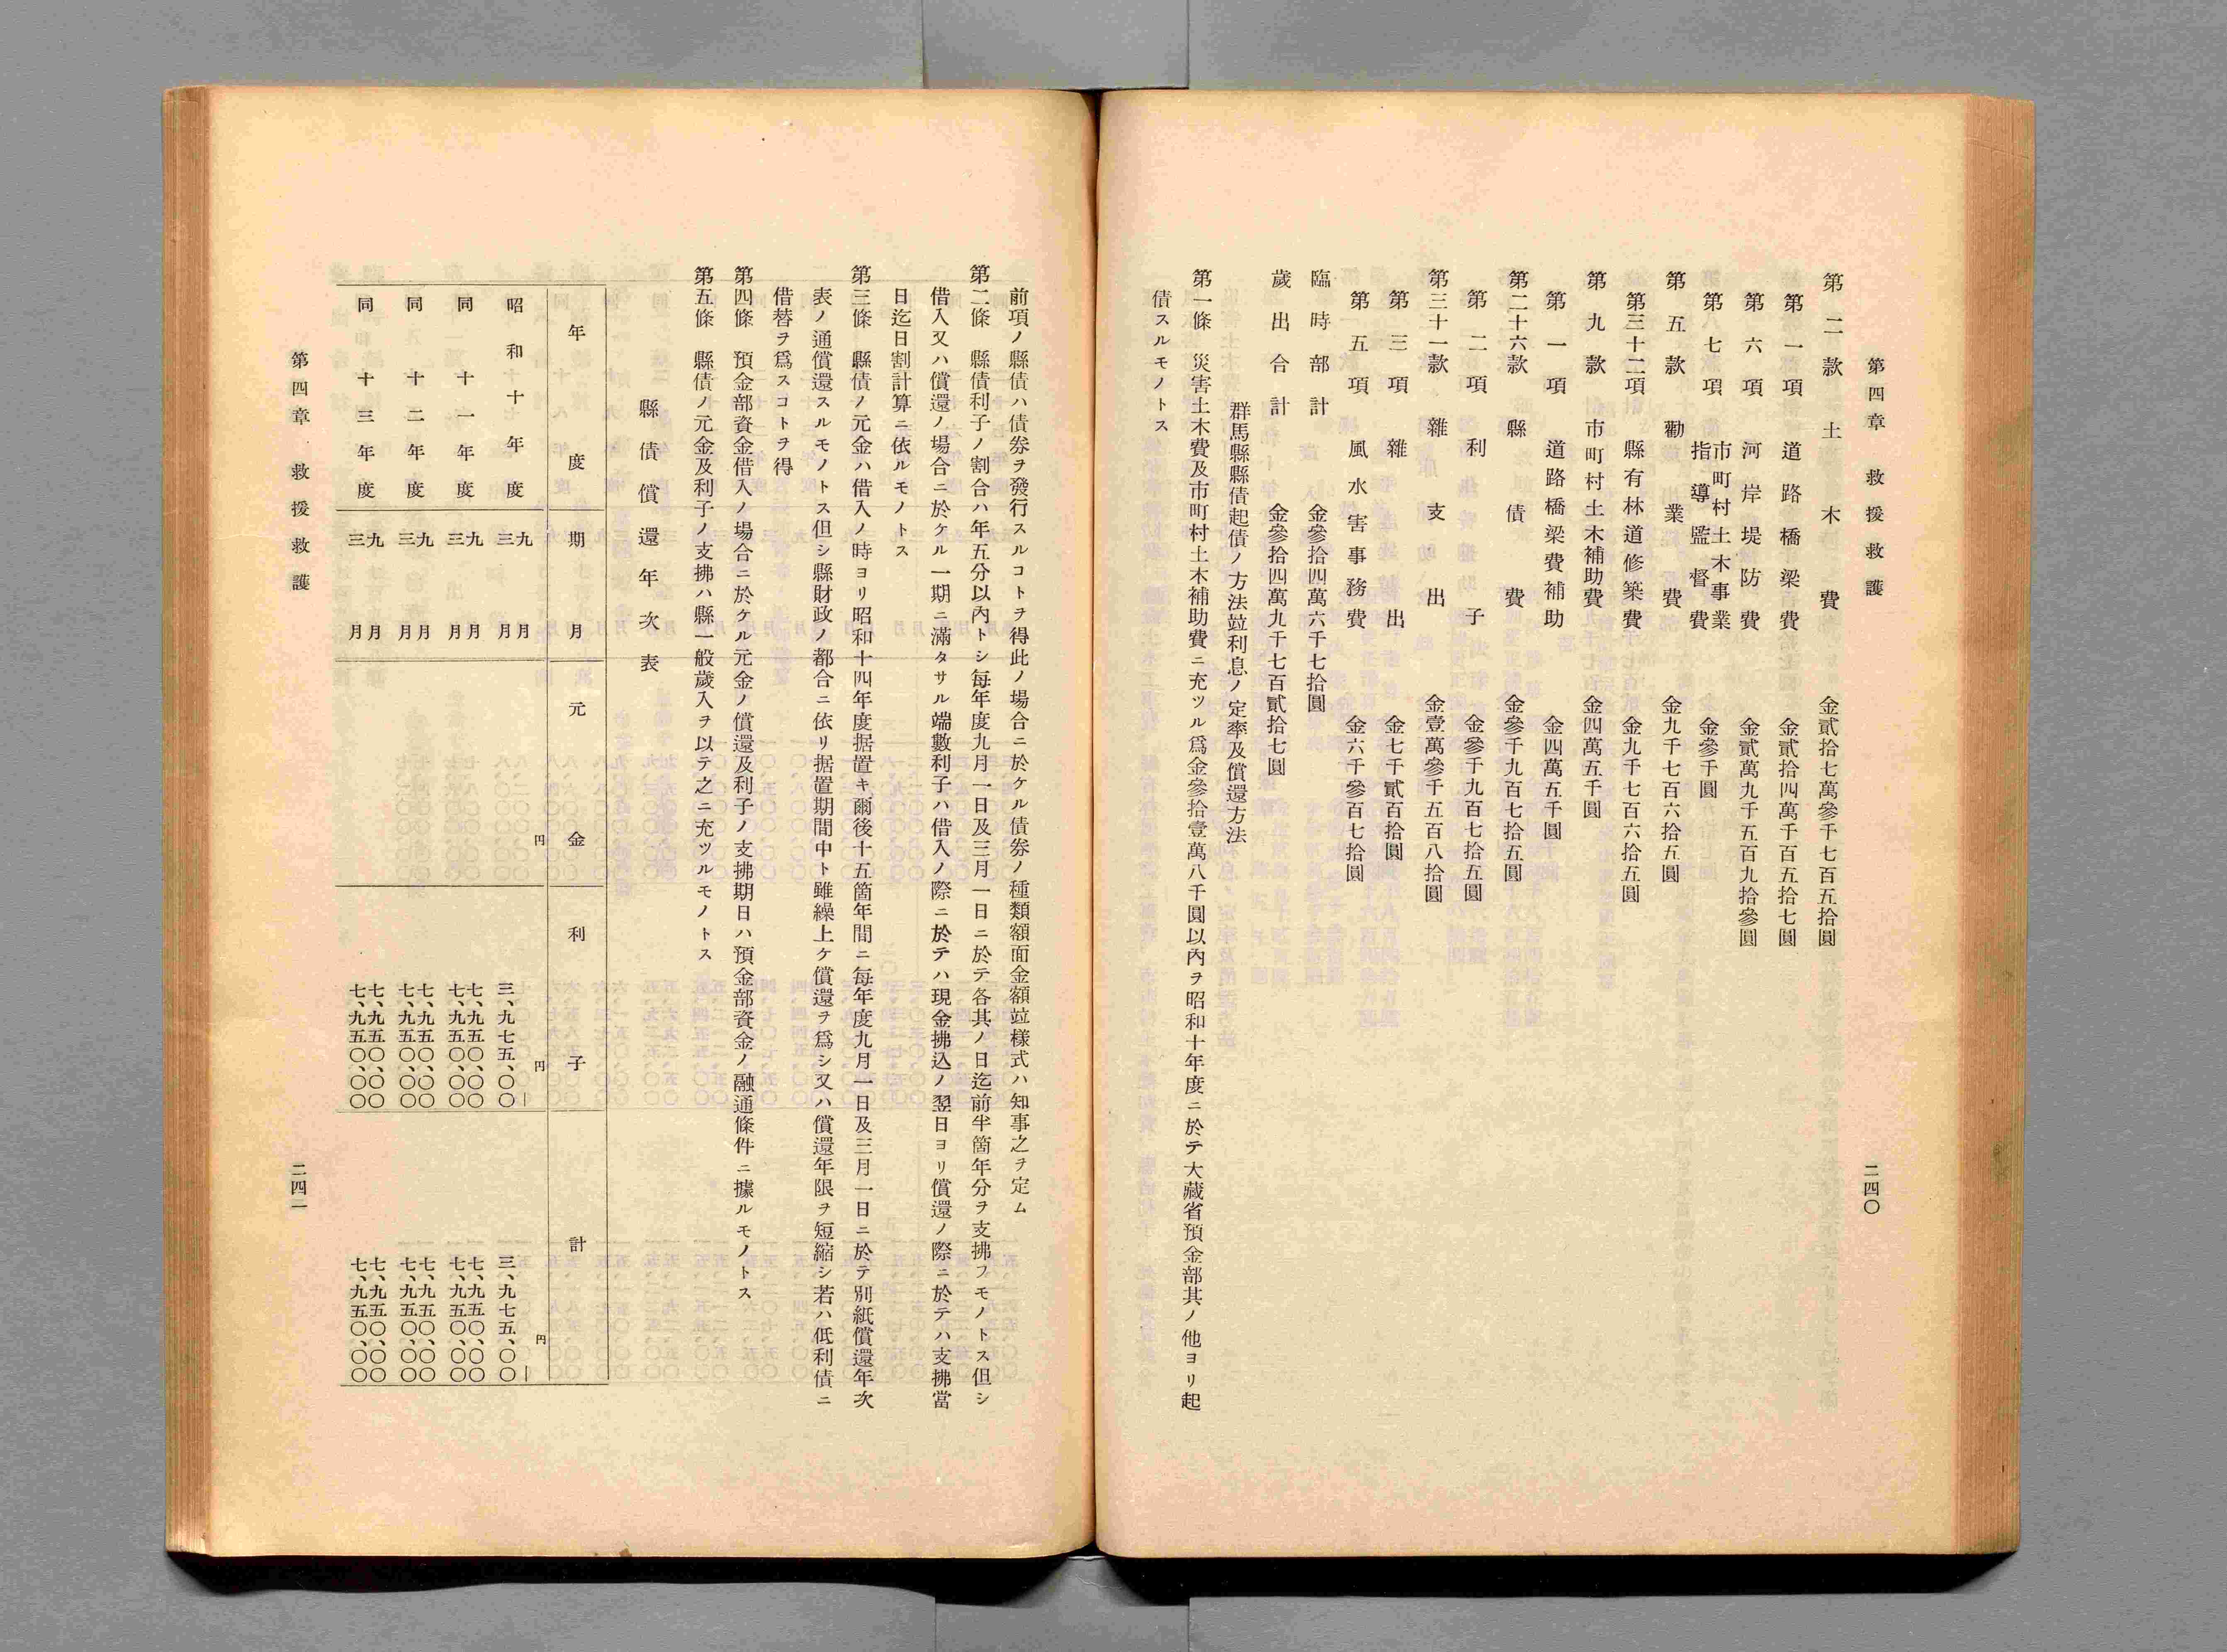 第四章　救援救護
二四〇
第二款　土木費　金貳拾七萬參千七百五拾圓
第一項　道路橋梁費　金貳拾四萬千百五拾七圓
第六項　河岸堤防費　金貳萬九千五百九拾參圓
第七項　市町村土木事業指導監督費　金參千圓
第五款　勸業費　金九千七百六拾五圓
第三十二項　縣有林道修築費　金九千七百六拾五圓
第九款　市町村土木補助費　金四萬五千圓
第一項　道路橋梁費補助　金四萬五千圓
第二十六款　縣債費　金參千九百七拾五圓
第二項　利子　金參千九百七拾五圓
第三十一款　雜支出　金壹萬參千五百八拾圓
第三項　雜出　金七千貳百拾圓
第五項　風水害事務費　金六千參百七拾圓
臨時部計　金參拾四萬六千七拾圓
歲出合計　金參拾四萬九千七百貳拾七圓
群馬縣縣債起債ノ方法竝利息ノ定率及償還方法
第一條　災害土木費及市町村土木補助費ニ充ツル爲金參拾壹萬八千圓以內ヲ昭和十年度ニ於テ大藏省預金部其ノ他ヨリ起
債スルモノトス
前項ノ縣債ハ債券ヲ發行スルコトヲ得此ノ場合ニ於ケル債券ノ種類額面金額竝樣式ハ知事之ヲ定ム
第二條　縣債利子ノ割合ハ年五分以內トシ每年度九月一日及三月一日ニ於テ各其ノ日迄前半箇年分ヲ支拂フモノトス但シ
借入又ハ償還ノ場合ニ於ケル一期ニ滿タサル端數利子ハ借入ノ際ニ於テハ現金拂込ノ翌日ヨリ償還ノ際ニ於テハ支拂當
日迄日割計算ニ依ルモノトス
第三條　縣債ノ元金ハ借入ノ時ヨリ昭和十四年度据置キ爾後十五箇年間ニ每年度九月一日及三月一日ニ於テ別紙償還年次
表ノ通償還スルモノトス但シ縣財政ノ都合ニ依リ据置期間中ト雖繰上ケ償還ヲ爲シ又ハ償還年限ヲ短縮シ若ハ低利債ニ
借替ヲ爲スコトヲ得
第四條　預金部資金借入ノ場合ニ於ケル元金ノ償還及利子ノ支拂期日ハ預金部資金ノ融通條件ニ據ルモノトス
第五條　縣債ノ元金及利子ノ支拂ハ縣一般歲入ヲ以テ之ニ充ツルモノトス
縣債償還年次表
年度　期月　元金　利子　計
円　円　円
昭和十年度　九月　｜　｜
三月　三、九七五、〇〇　三、九七五、〇〇
同十一年度　九月　七、九五〇、〇〇　七、九五〇、〇〇
三月　七、九五〇、〇〇　七、九五〇、〇〇
同十二年度　九月　七、九五〇、〇〇　七、九五〇、〇〇
三月　七、九五〇、〇〇　七、九五〇、〇〇
同十三年度　九月　七、九五〇、〇〇　七、九五〇、〇〇
三月　七、九五〇、〇〇　七、九五〇、〇〇
第四章　救援救護
二四一